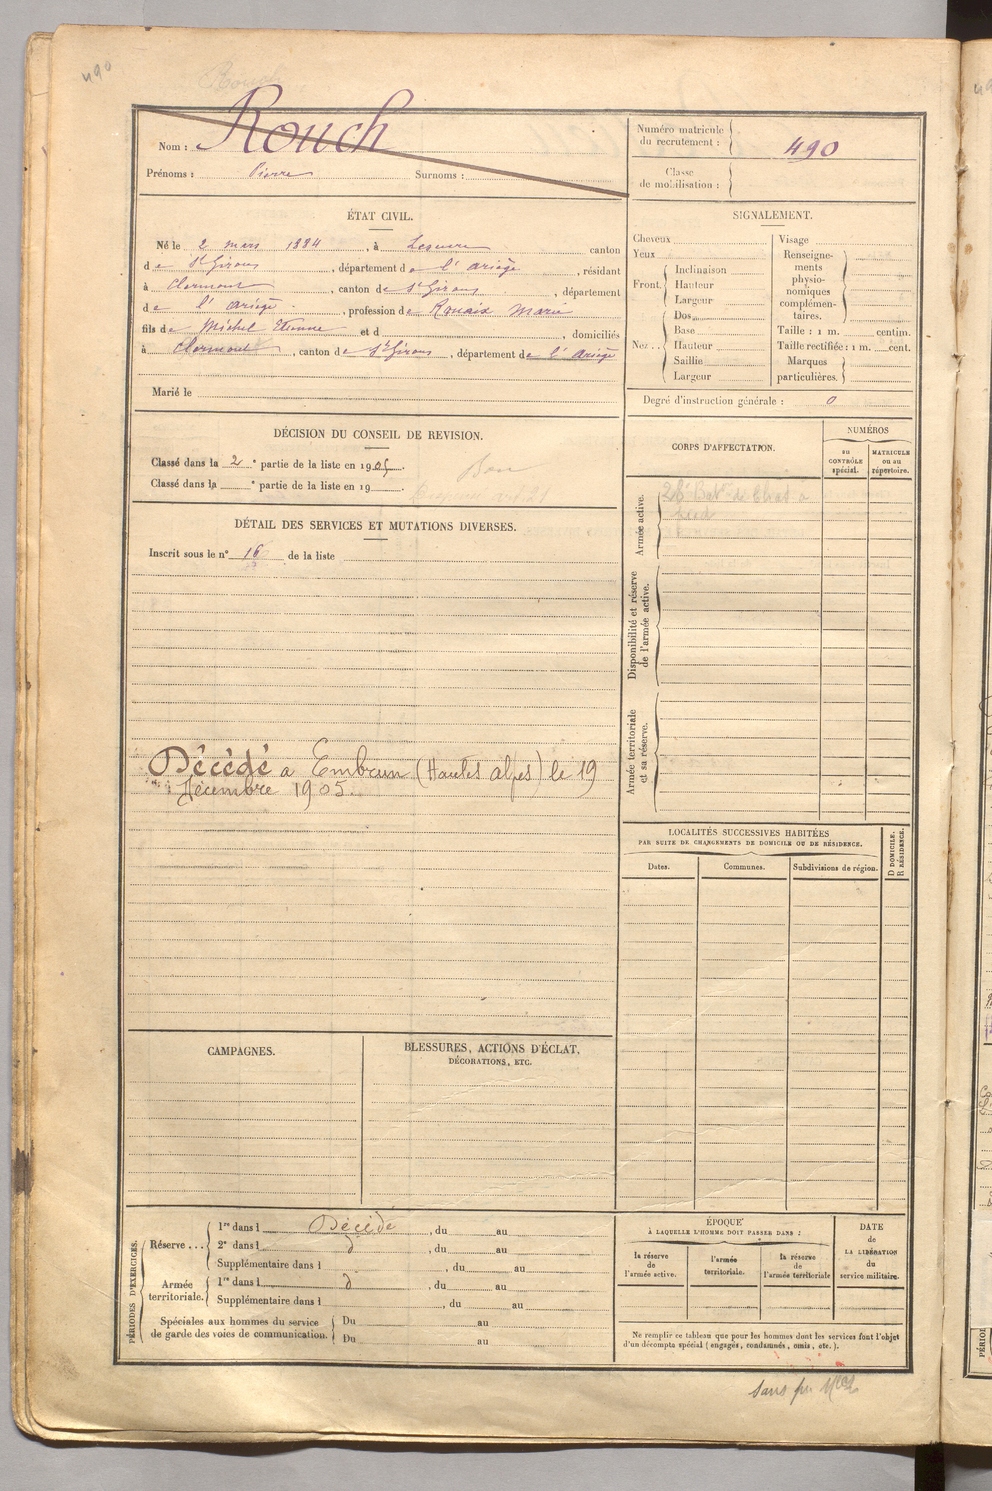 490
Rouch
Nom : Rouch
Prénoms : Pierre Surnoms :
Numéro matricule
du recrutement : 490
Classe
de mobilisation :
ÉTAT CIVIL.
Né le 2 mars 1884, à canton
de St Girons, département de l'ariège, résidant
à Clermont, canton de St Girons, département
de l'ariège, profession de Rouaix Marie
fils de Michel Etienne et d , domiciliés
à Clermont, canton de St Girons, département de l'ariège
Marié le
SIGNALEMENT.
Cheveux
Yeux
Front. Inclinaison
Hauteur
Largeur
Nez . . Dos
Base
Hauteur
Saillie
Largeur
Visage
Renseigne-
ments
physio-
nomiques
complémen-
taires.
Taille : 1 m. centim.
Taille rectifiée : 1 m. cent.
Marques
particulières.
Degré d'instruction générale : 0
DÉCISION DU CONSEIL DE REVISION.
Classé dans la 2e partie de la liste en 1905.
Classé dans la e partie de la liste en 19 .
Bon
DÉTAIL DES SERVICES ET MUTATIONS DIVERSES.
Inscrit sous le n° 16 de la liste
Décédé a Embrun (Hautes alpes) le 19
Décembre 1905.
CORPS D'AFFECTATION.
NUMÉROS
au
CONTRÔLE
spécial.
MATRICULE
ou au
répertoire.
Armée active.
28e Batn de Chas à
pied
Disponibilité et réserve
de l'armée active.
Armée territoriale
et sa réserve.
LOCALITÉS SUCCESSIVES HABITÉES
PAR SUITE DE CHANGEMENTS DE DOMICILE OU DE RÉSIDENCE.
D DOMICILE.
R RÉSIDENCE.
Dates. Communes. Subdivisions de région.
CAMPAGNES.
BLESSURES, ACTIONS D'ÉCLAT,
DÉCORATIONS, ETC.
PÉRIODES D'EXERCICES.
Réserve . . . 1re dans l Décédé, du au
2e dans l d, du au
Supplémentaire dans l , du au
Armée
territoriale. 1re dans l d, du au
Supplémentaire dans l , du au
Spéciales aux hommes du service
de garde des voies de communication. Du au
Du au
ÉPOQUE
À LAQUELLE L'HOMME DOIT PASSER DANS :
la réserve
de
l'armée active.
l'armée
territoriale.
la réserve
de
l'armée territoriale
DATE
de
LA LIBÉRATION
du
service militaire.
Ne remplir ce tableau que pour les hommes dont les services font l'objet
d'un décompte spécial (engagés, condamnés, omis, etc.).